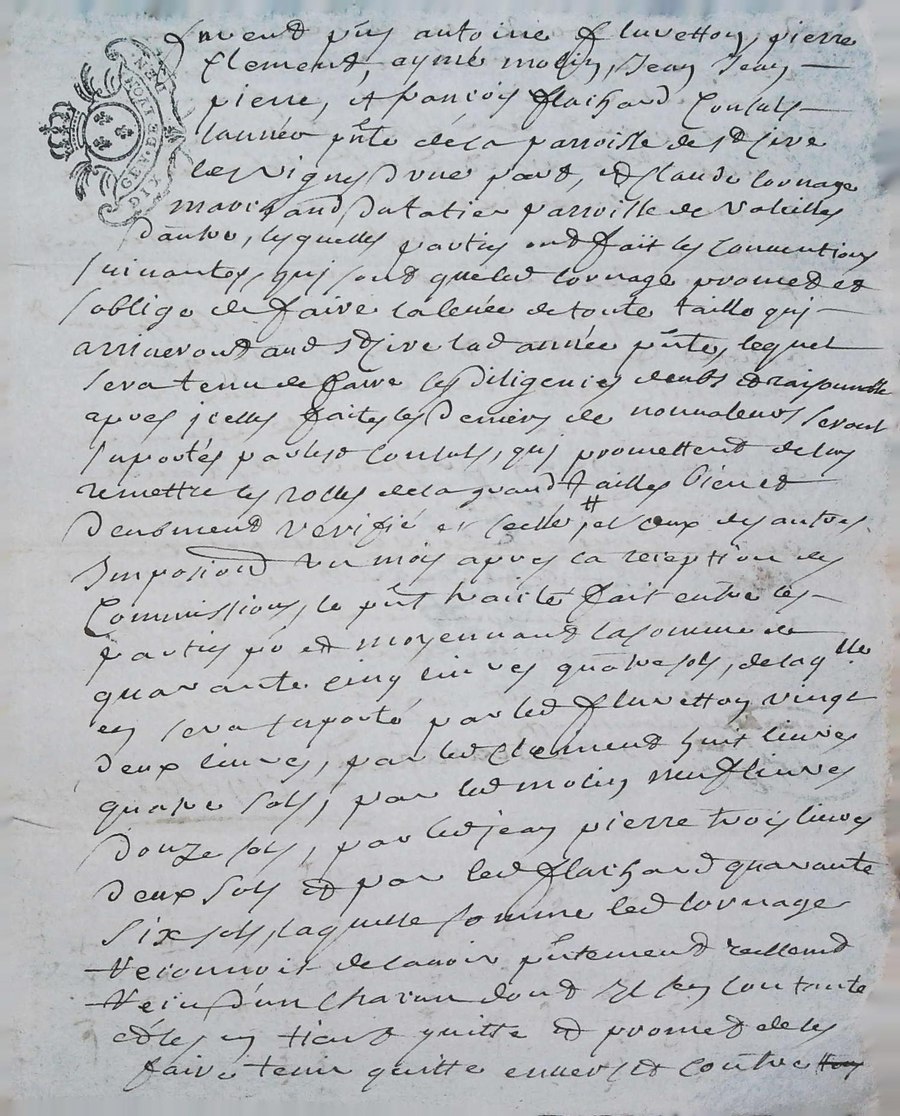 GEN. DE
DIX
furent p̃ns antoine fluvetton, pierre
Clement, aymé molin, Jean Jean
pierre, et francois flachard Consuls
lannée p̃nte de la parroisse de st Cire
les vignes d'une part, et Claude Cornage
marchand du tatier parroisse de valeilles
d'autre, lesquelles parties ont fait les Conventions
suivantes, qui sont que led Cornage promet et
soblige de faire la levée de toute taille qui
arriveront aud st Cire lad année p̃nte, lequel
sera tenu de faire les diligences deubs et raisonnable
apres jcelles faites les deniers de nonvaleurs seront
suportés par lesd Consuls, qui promettent de luy
remettre les rolles de la grand taille bien et
deubment verifié et scellé # et ceux des autres
Imposions un mois apres la reception des
Commissions, le p̃nt traicté fait entre les
parties po et moyennant la somme de
quarante cinq livres quatre sols, de laqlle
en sera suporté par led fluvetton vingt
deux livres, par led Clement huit livres
quatre sols, par led molin neuf livres
douze sols, par led jean pierre trois livres
deux sols et par led flachard quarante
six sols, laquelle somme led Cornage
reconnoit de lavoir p̃ntement reellemt
receu d'un chacun dont Il sen contante
et les en tient quitte et promet de les
faire tenir quitte envers et contre